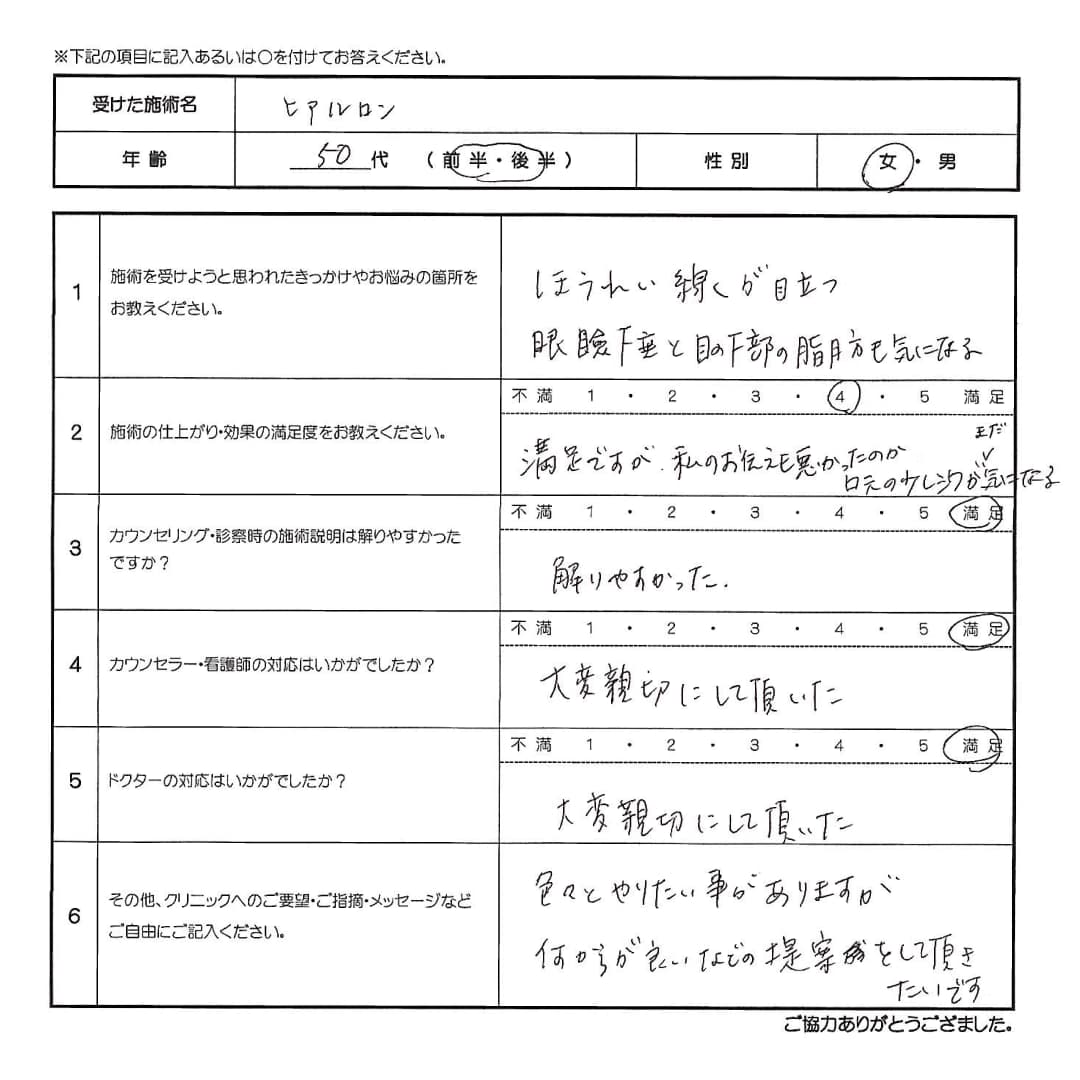 ※下記の項目に記入あるいは○を付けてお答えください。
受けた施術名 ヒアルロン
年齢 50代 (前半・後半) 性別 女・男
1 施術を受けようと思われたきっかけやお悩みの箇所を
お教えください。
ほうれい線くが目立つ
眼瞼下垂と目の下部の脂肪も気になる
2 施術の仕上がり・効果の満足度をお教えください。
不満 1 ・ 2 ・ 3 ・ 4 ・ 5 満足
まだ
満足ですが、私のお伝えも悪かったのか
口元の が気になる
3 カウンセリング・診察時の施術説明は解りやすかった
ですか?
不満 1 ・ 2 ・ 3 ・ 4 ・ 5 満足
解りやすかった.
4 カウンセラー・看護師の対応はいかがでしたか?
不満 1 ・ 2 ・ 3 ・ 4 ・ 5 満足
大変親切にして頂いた
5 ドクターの対応はいかがでしたか?
不満 1 ・ 2 ・ 3 ・ 4 ・ 5 満足
大変親切にして頂いた
6 その他、クリニックへのご要望・ご指摘・メッセージなど
ご自由にご記入ください。
色々とやりたい事がありますが
何からが良いなどの提案をして頂き
たいです
ご協力ありがとうござました。